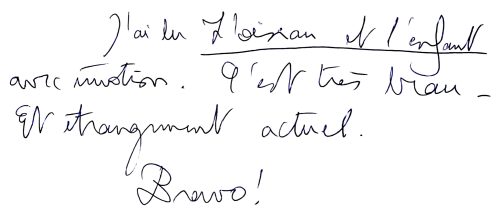 J'ai lu L'oiseau et l'enfant
avec émotion. C'est très beau -
Et étrangement actuel.
Bravo!